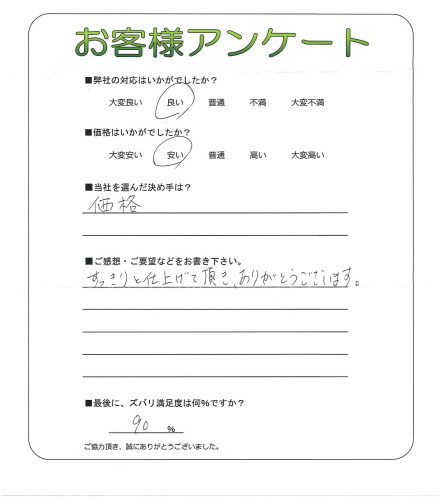 お客様アンケート
■弊社の対応はいかがでしたか？
大変良い 良い 普通 不満 大変不満
■価格はいかがでしたか？
大変安い 安い 普通 高い 大変高い
■当社を選んだ決め手は？
価格
■ご感想・ご要望などをお書き下さい。
すっきりと仕上げて頂き、ありがとうございます。
■最後に、ズバリ満足度は何％ですか？
90 ％
ご協力頂き、誠にありがとうございました。